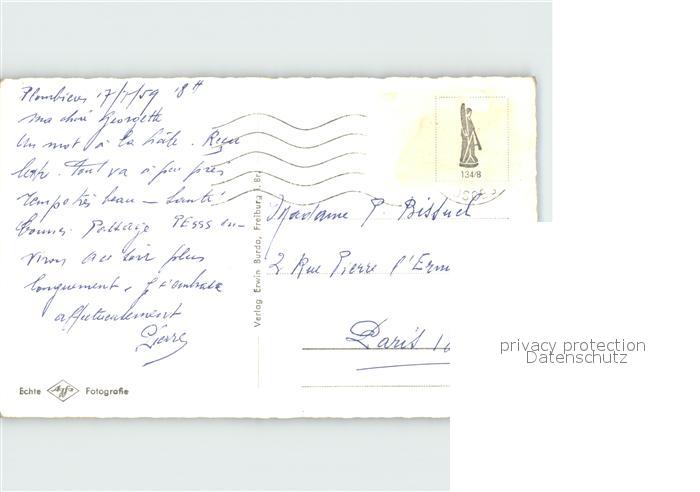 Plombières 17/7/59 18H
Ma chère Georgette
Un mot à la hâte. Reçu
lettre. Tout va à peu près
Temps très beau - Santé
bonne.
vrai ce soir plus
longuement. Je t'embrasse
affectueusement
Pierre
134/8
Madame P. Bissuel
2 Rue Pierre l'Erm
Paris
Verlag Erwin Burda, Freiburg i. Br.
Echte Agfa Fotografie
privacy protection
Datenschutz